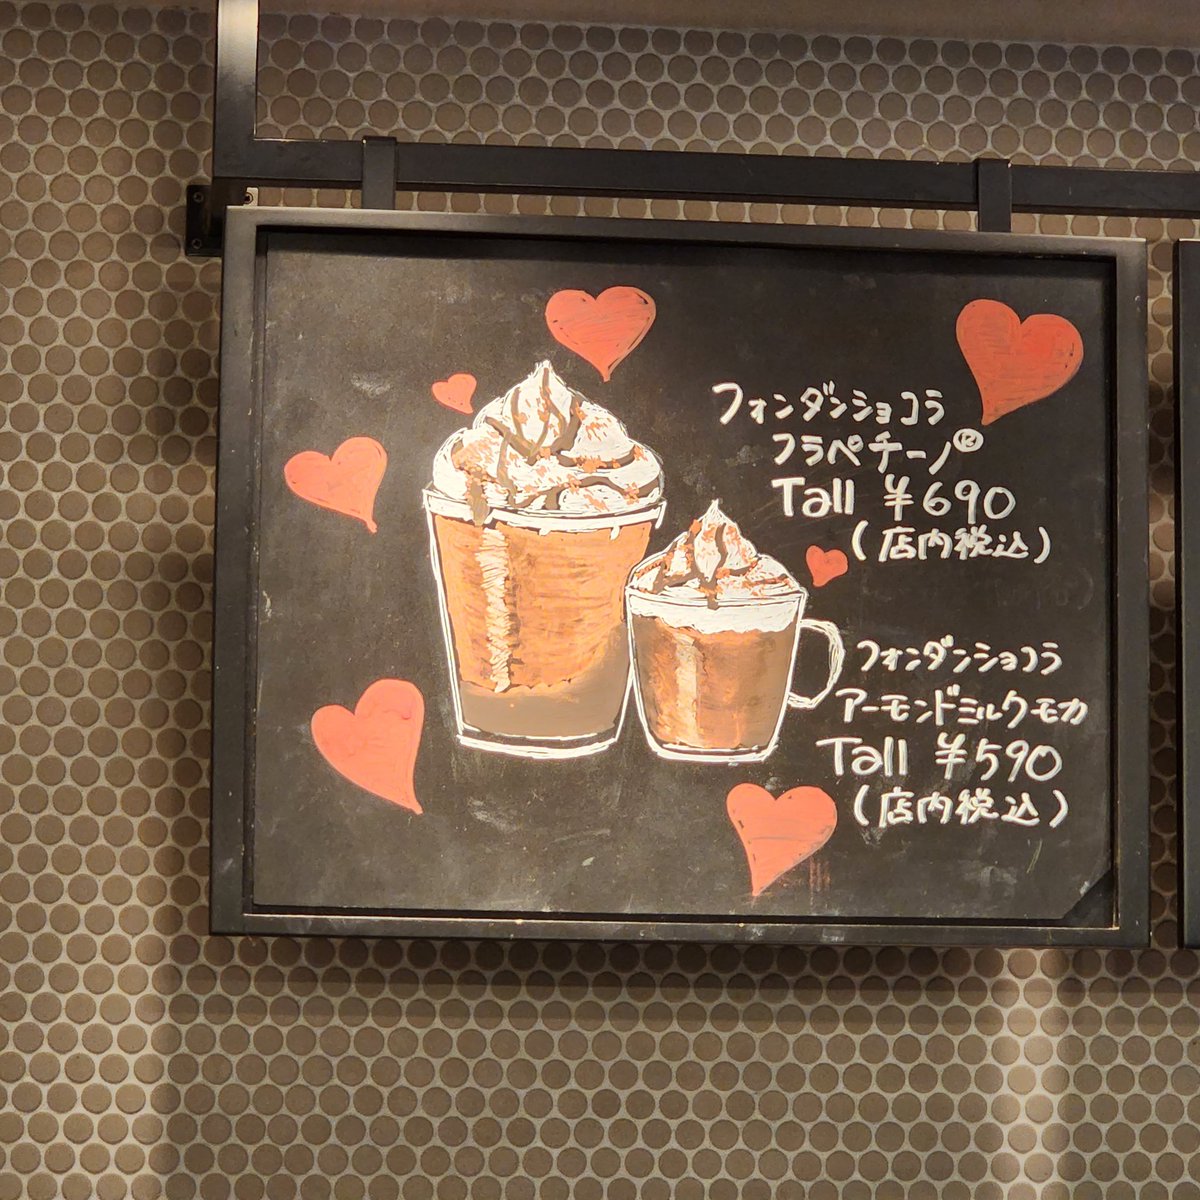 フォンダンショコラ
フラペチーノ®
Tall ¥690
(店内税込)
フォンダンショコラ
アーモンドミルクモカ
Tall ¥590
(店内税込)